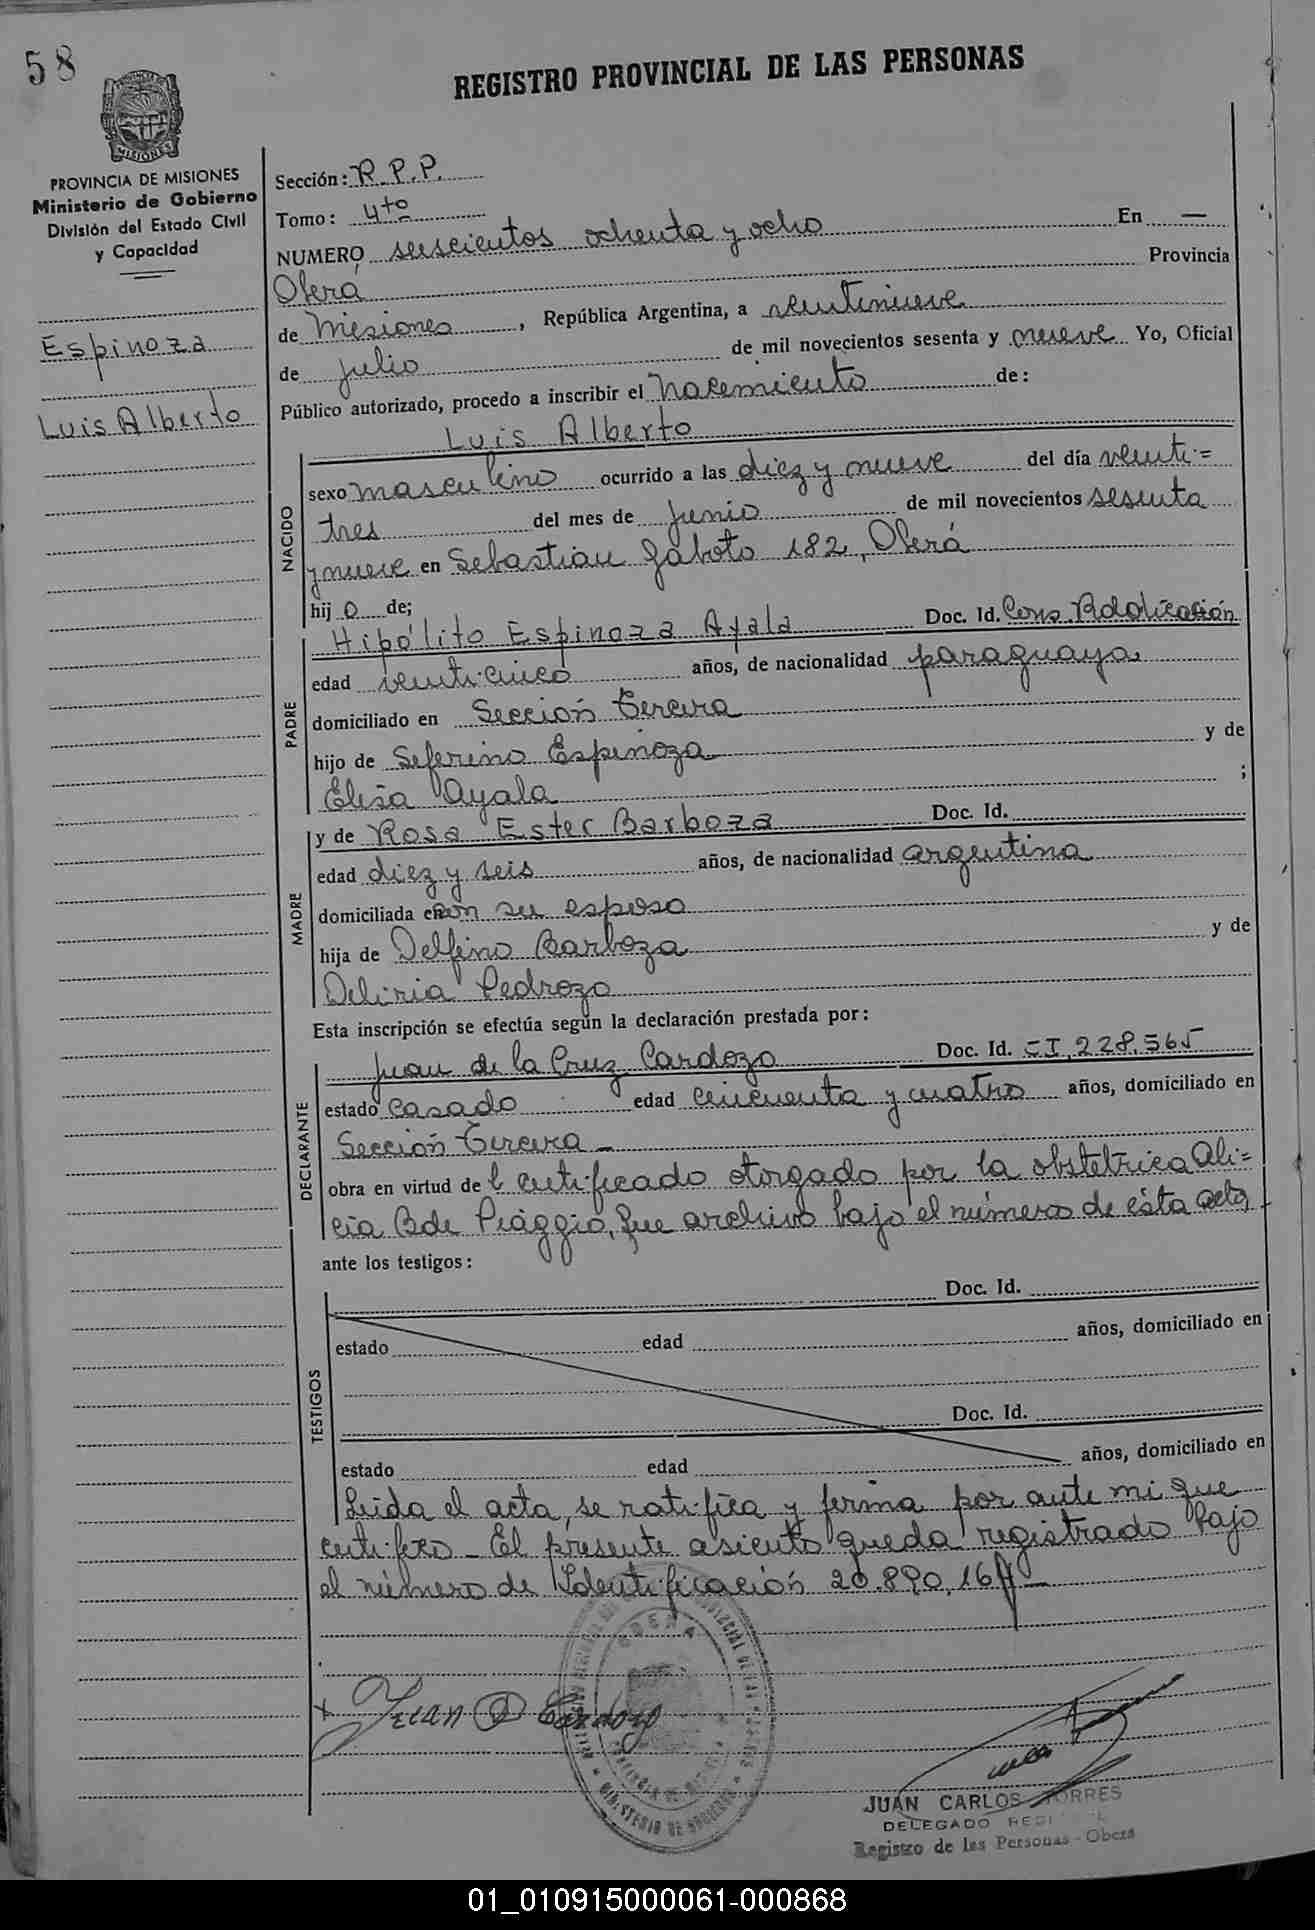 58
REGISTRO PROVINCIAL DE LAS PERSONAS
MISIONES
PROVINCIA DE MISIONES
Ministerio de Gobierno
División del Estado Civil
y Capacidad
Espinoza
Luis Alberto
Sección: R.P.P.
Tomo: 4to
NUMERO seiscientos ochenta y ocho En —
Oberá Provincia
de Misiones, República Argentina, a veintinueve
de julio de mil novecientos sesenta y nueve Yo, Oficial
Público autorizado, procedo a inscribir el nacimiento de:
Luis Alberto
NACIDO
sexo masculino ocurrido a las diez y nueve del día veinti=
tres del mes de junio de mil novecientos sesenta
y nueve en Sebastián Gaboto 182, Oberá
hijo de;
PADRE
Hipólito Espinoza Ayala Doc. Id. Cons. Radicación
edad veinticinco años, de nacionalidad paraguaya
domiciliado en Sección tercera
hijo de Seferino Espinoza y de
Elisa Ayala ;
MADRE
y de Rosa Ester Barboza Doc. Id.
edad diez y seis años, de nacionalidad argentina
domiciliada con su esposo
hija de Delfino Barboza y de
Deliria Pedrozo
Esta inscripción se efectúa según la declaración prestada por:
DECLARANTE
Juan de la Cruz Cardozo Doc. Id. CI, 228.565
estado casado edad cincuenta y cuatro años, domiciliado en
Sección tercera –
obra en virtud del certificado otorgado por la obstétrica Ali=
cia B de Piaggio, que archivo bajo el número de ésta acta,
ante los testigos:
TESTIGOS
Doc. Id.
estado edad años, domiciliado en
Doc. Id.
estado edad años, domiciliado en
Leida el acta, se ratifica y firma por ante mi que
certifico – El presente asiento queda registrado bajo
el número de Identificación 20.890.16
Juan D Cardozo
JUAN CARLOS TORRES
DELEGADO
Registro de las Personas - Oberá
01_010915000061-000868